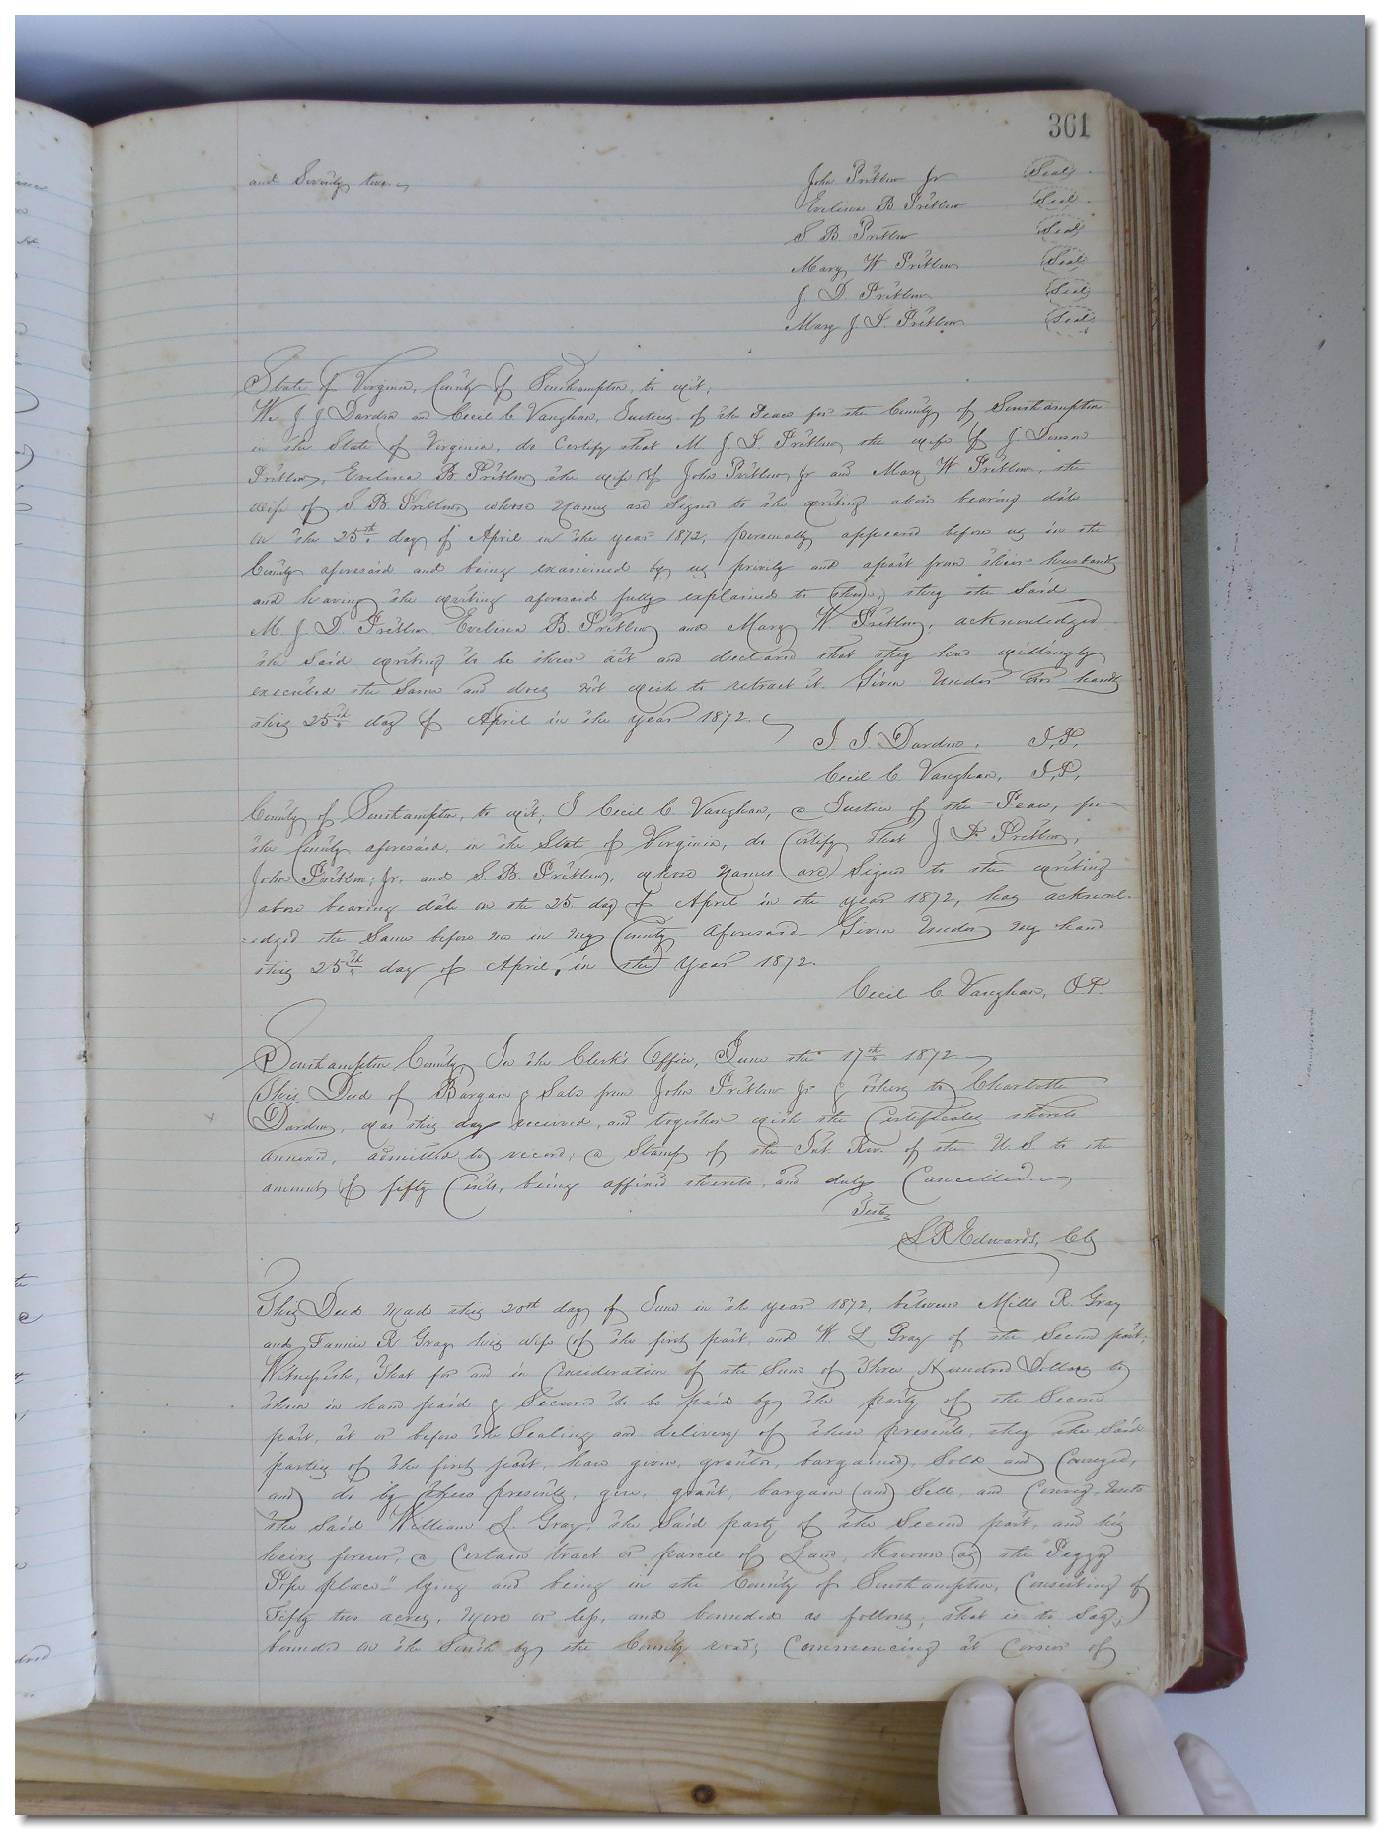 361
and Seventy two.
John Pretlow Jr (Seal)
Evelina B Pretlow (Seal)
S B Pretlow (Seal)
Mary W Pretlow (Seal)
J D. Pretlow (Seal)
Mary J. D. Pretlow (Seal)
State of Virginia, County of Southampton, to wit;
We J J Darden and Cecil C Vaughan, Justices of the Peace for the County of Southampton
in the State of Virginia, do Certify that M J D Pretlow the wife of J Denson
Pretlow, Evelina B. Pretlow the wife of John Pretlow Jr and Mary W Pretlow, the
wife of S B. Pretlow whose Names are Signed to the writing above bearing date
on the 25th day of April in the year 1872, personally appeared before us in the
County aforesaid and being examined by us privily and apart from their husbands
and having the writing aforesaid fully explained to them, they the Said
M. J. D. Pretlow Evelina B. Pretlow and Mary W. Pretlow, acknowledged
the Said writing to be their act and declared that they had willingly
executed the Same and does not wish to retract it. Given Under our hands
this 25th day of April in the year 1872.
J. J. Darden, J.P,
Cecil C Vaughan, J,P,
County of Southampton, to wit; I Cecil C. Vaughan, a Justice of the Peace, for
the County aforesaid, in the State of Virginia, do Certify that J. D. Pretlow,
John Pretlow, Jr. and S. B. Pretlow, whose Names are Signed to the writing
above bearing date on the 25 day of April in the year 1872, has acknowl-
=edged the Same before me in my County aforesaid. Given Under my hand
this 25th day of April, in the Year 1872.
Cecil C. Vaughan, J.P.
Southampton County In the Clerk's Office, June the 17th 1872.
This Deed of Bargan & Sale from John Pretlow Jr & others to Charlotte
Darden, was this day received, and together with the Certificates thereto
annexed, admitted to record; a Stamp of the Int Rev. of the U. S to the
amount of fifty Cents, being affixed thereto, and duly Cancelled.
Teste
L R Edwards, Clk
This Deed Made this 20th day of June in the year 1872, between Mills R. Gray
and Fannie R Gray his wife of the first part, and W L Gray of the Second part,
Witnesseth, That for and in Consideration of the Sum of Three Hundred Dollars to
them in hand paid & Secured to be paid by the party of the Second
part, at or before the Sealing and delivery of these presents, they the Said
parties of the first part, have given, granted, bargained, Sold and Conveyed,
and do by these presents, give, grant, bargain and Sell, and Convey, Unto
the Said William L. Gray, the Said party of the Second part, and his
heirs forever, a Certain tract or parcel of Land, Known as the "Peggy
Pope place" lying and being in the County of Southampton, Consisting of
Fifty two acres, More or less, and bounded as follows; that is to Say;
bounded on the South by the County road; Commencing at Corner of